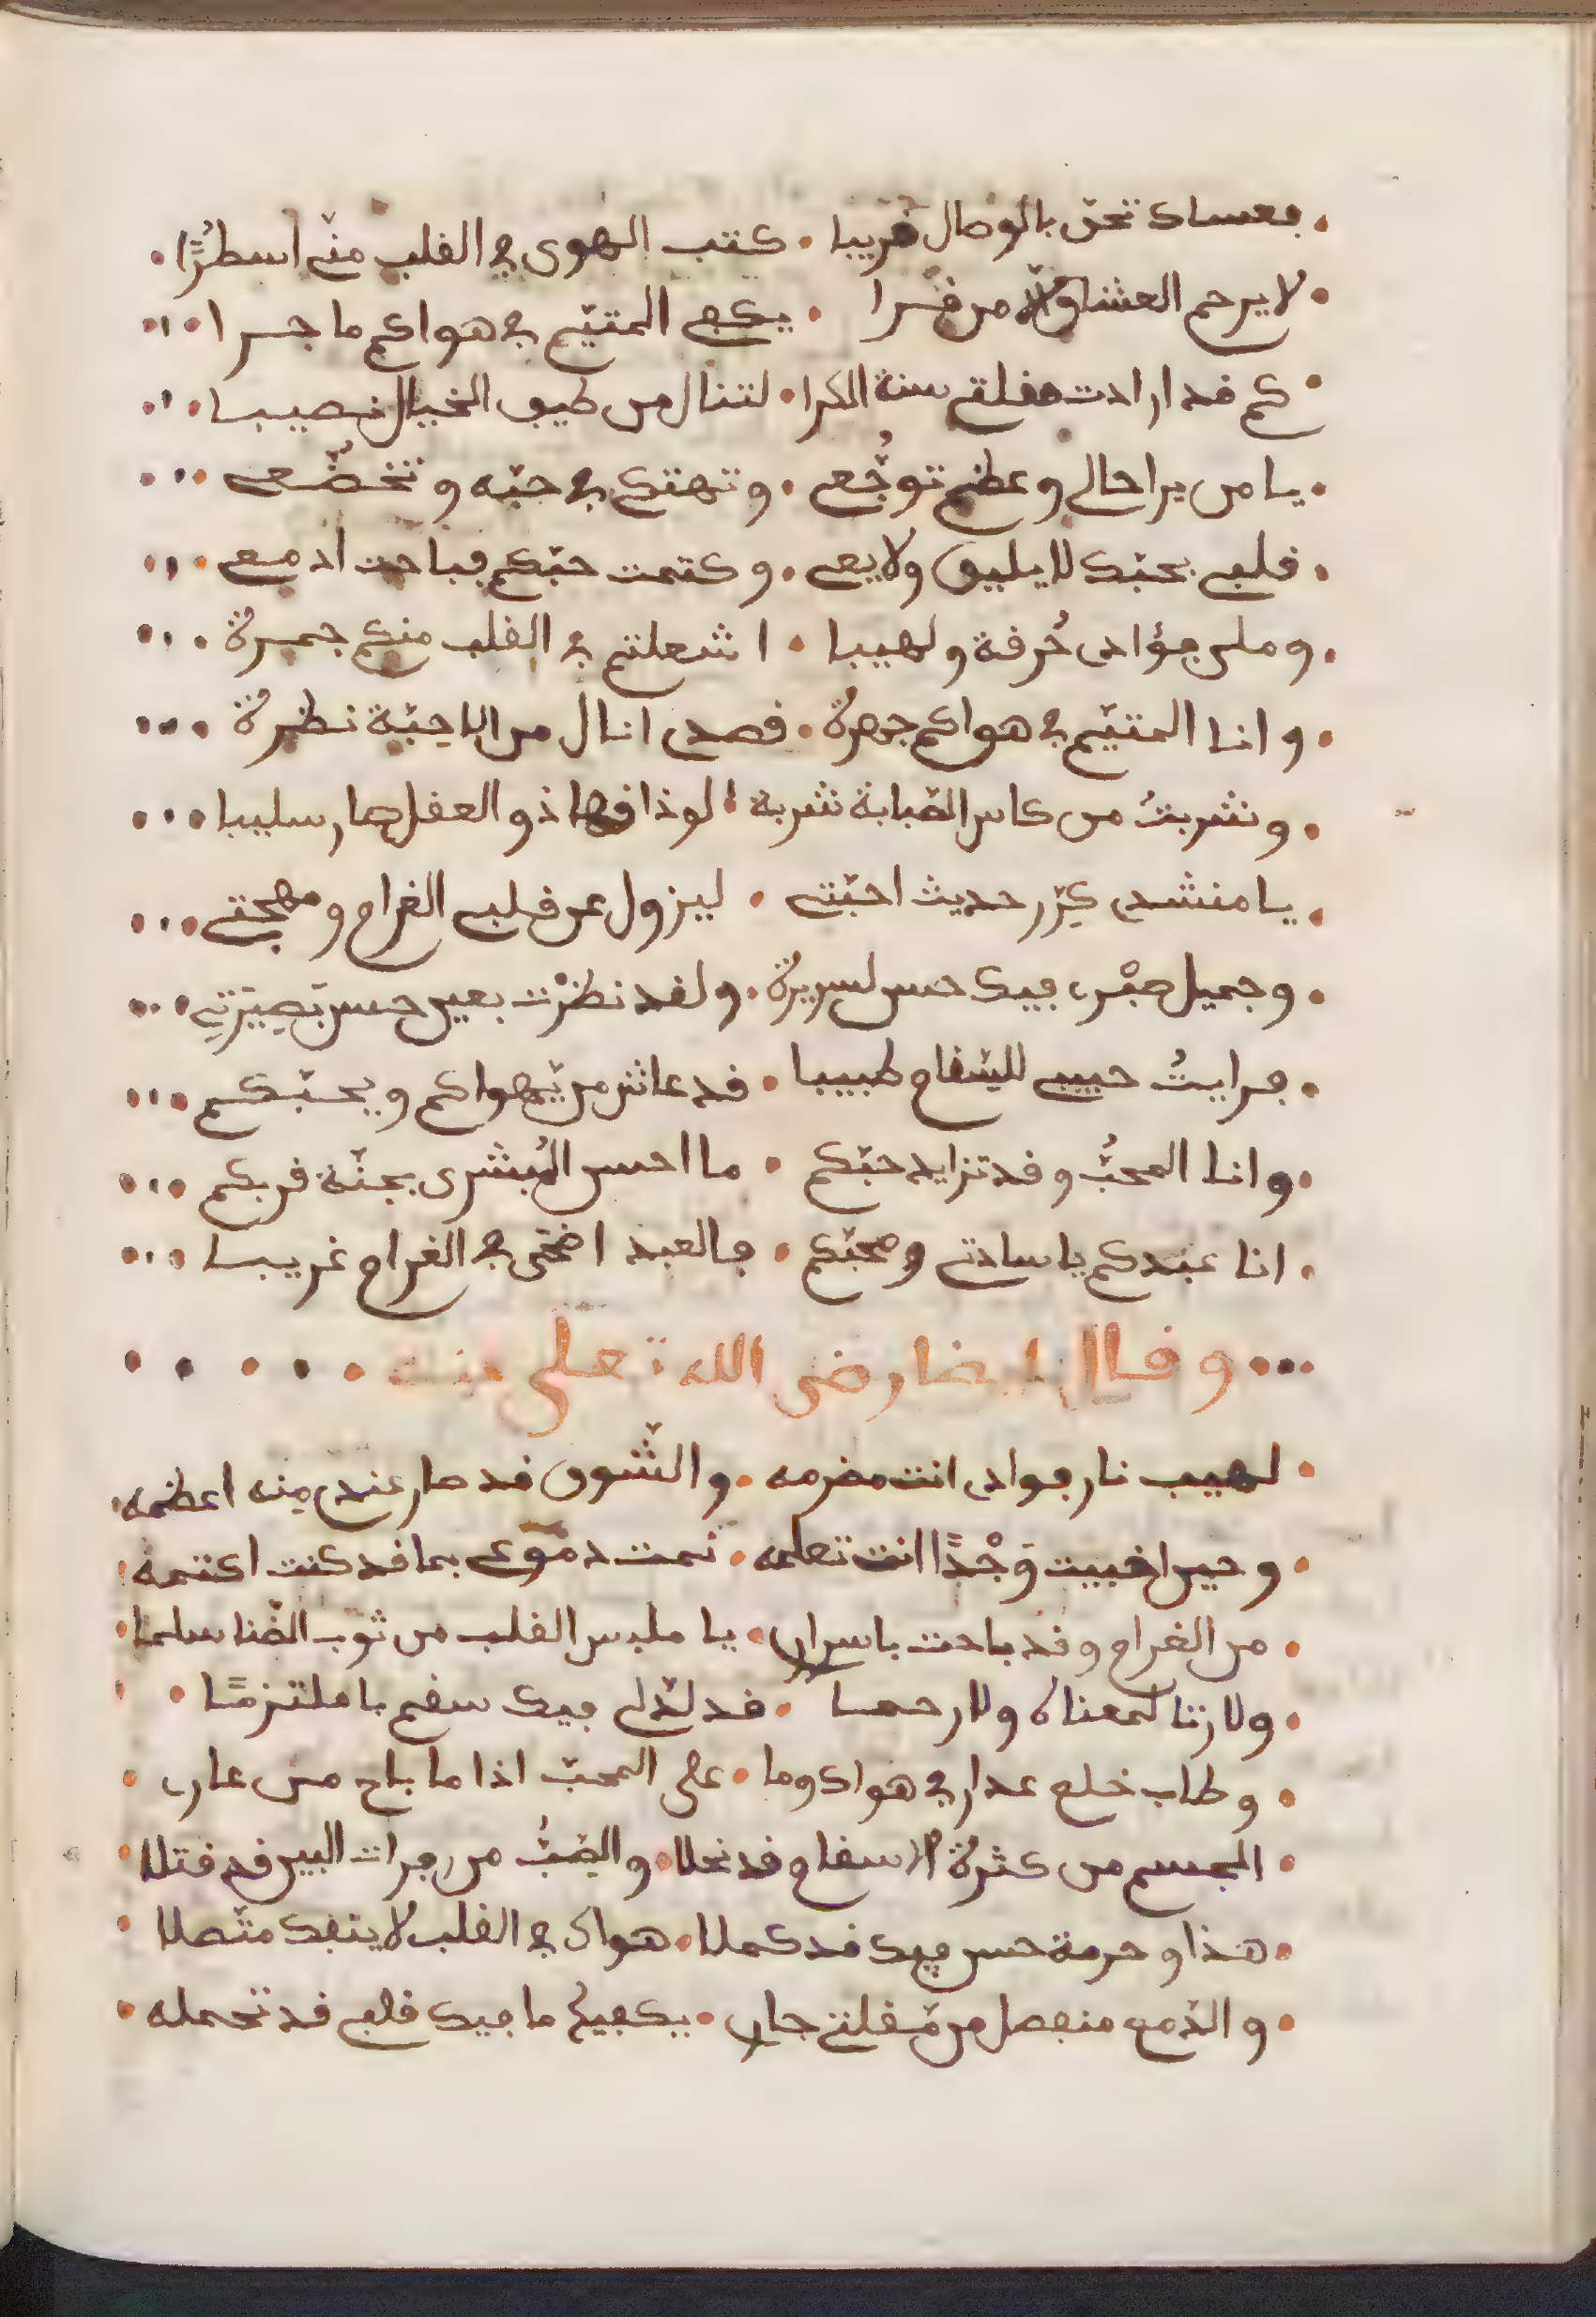 فعساك تحن بالوصال قريبا . كتب الهوى في القلب مني اسطرًا
لا يرحم العشاق الا من قرا . يكفي المتيم في هواكم ما جرا
كم قد ارادت مقلتي سنة الكرا . لتنال من طيف الخيال نصيبا
يا من يرا حالي وعظم توجُّعي . وتهتكي في حبّه وتخضُّعي
قلبي بحبّك لا يليق ولا يعي . وكتمت حبّكم فباحت ادمعي
وملى فؤادى حُرقة ولهيبا . اشعلتم في القلب منكم جمرة
وانا المتيّم في هواكم جهرة . قصدى انال من الاحِبّة نظرة
وشربتُ من كاس الصّبابة شربة . لو ذاقها ذو العقل صار سليبا
يا منشدى كرّر حديث احبّتي . ليزول عن قلبي الغرام ومهجتي
وجميل صبْرى فيك حسن لسريرة . ولقد نظرْت بعين حسن بَصِيرَتِي
فرايتُ حبيبي للسّقام طبيبا . قد عاش من يّهواكم ويحبّكم
وانا المحبُّ وقد تزايد حبّكم . ما احسن البُشرى بجنّة قربكم
انا عبدكم يا سادتي ومحبّكم . فالعبد اضحى في الغرام غريبا
وقال ايضا رضى الله تعلى عنه
لهيب نار فوادى انت مضرمه . والشّوق قد صار عندى مِنه اعظمه
وحين اخفيت وَجْدًا انت تعلمه . نمت دموعى بما قد كنت اكتمه
من الغرام وقد باحت باسرارى . يا ملبس القلب من ثوب الضّنا سلما
ولا رثا لمعناه ولا رحما . قد لذّ لي فيك سقم يا ملتزمًا
وطاب خلع عدارى في هواك وما . على المحبّ اذا ما باح من عار
الجسم من كثرة الاسقام قد نحلا . والصّبُّ من زفرات البين قد قتلا
هذا وحرمة حسن فيك قد كملا . هواك في القلب لا ينفك متّصلا
والدّمع منفصل من مّقلتي جارى . يكفيك ما فيك قلبي قد تحمله